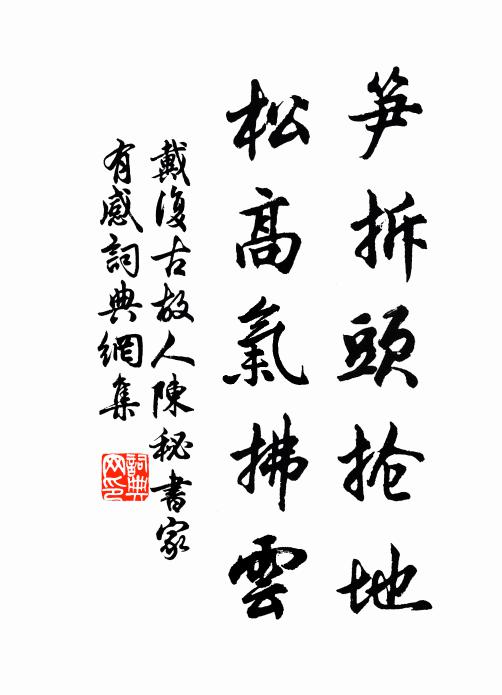 笋拆頭搶地
松高氣拂雲
戴復古故人陳秘書家
有感詞典網集
詞典
网印